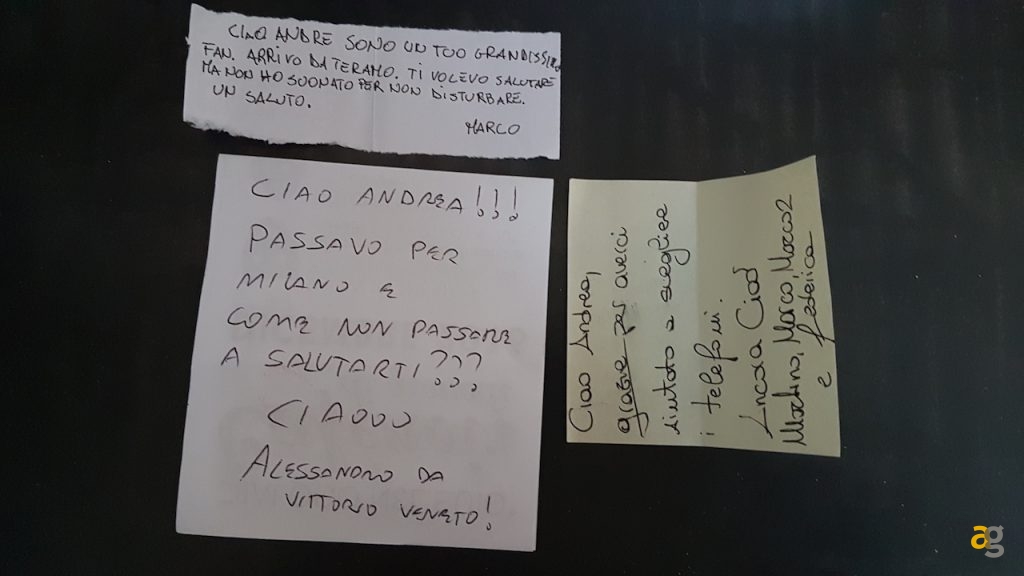 CIAO ANDRE SONO UN TUO GRANDISSIMO
FAN. ARRIVO DA TERAMO. TI VOLEVO SALUTARE
MA NON HO SUONATO PER NON DISTURBARE.
UN SALUTO.
MARCO
CIAO ANDREA!!!
PASSAVO PER
MILANO E
COME NON PASSARE
A SALUTARTI???
CIAOOO
ALESSANDRO DA
VITTORIO VENETO!
Ciao Andrea,
grazie per averci
aiutato a scegliere
i telefoni.
Ciao!
Martino, Marco, Marco2
e Federica
ag